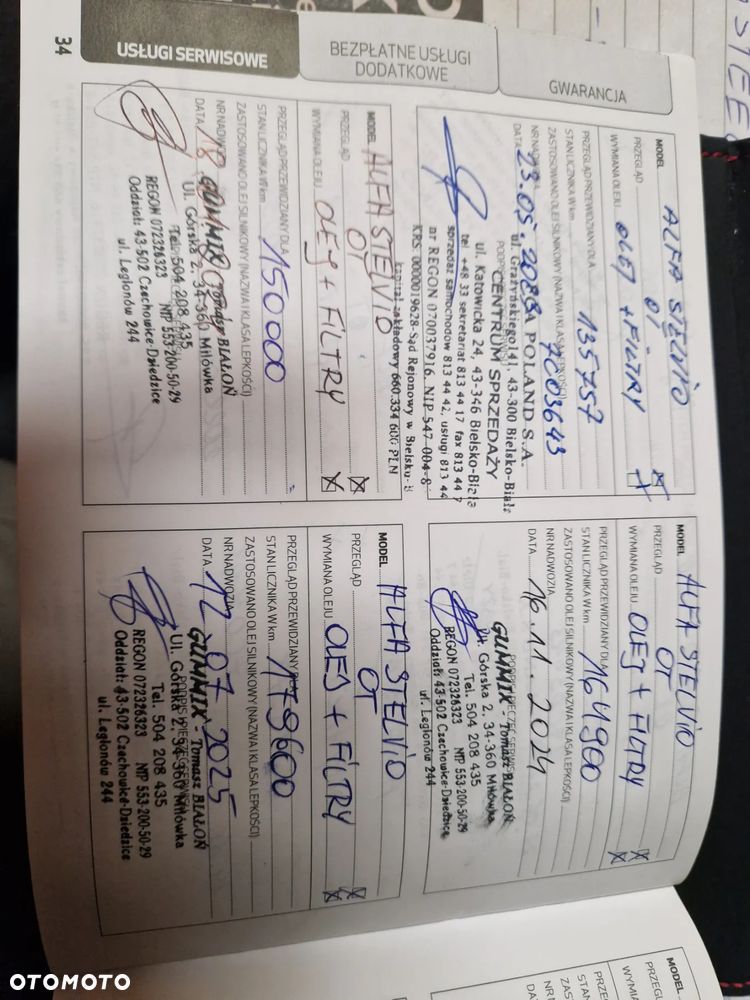 34
USŁUGI SERWISOWE
BEZPŁATNE USŁUGI
DODATKOWE
GWARANCJA
MODEL ALFA STELVIO
PRZEGLĄD OT
WYMIANA OLEJU OLEJ + FILTRY
PRZEGLĄD PRZEWIDZIANY DLA
STAN LICZNIKA W km 135757
ZASTOSOWANO OLEJ SILNIKOWY (NAZWA I KLASA LEPKOŚCI)
NR NADWOZIA 7C03643
DATA 23.05.
POLAND S.A.
ul. Grażyńskiego 141, 43-300 Bielsko-Biała
CENTRUM SPRZEDAŻY
ul. Katowicka 24, 43-346 Bielsko-Biała
tel +48 33 sekretariat 813 44 17 fax 813 44
sprzedaż samochodów 813 44 42, usługi 813 44
nr REGON 070037916, NIP 547-004-8
KRS 0000019628-Sąd Rejonowy w Bielsku-B
kapitał zakładowy 660.334.600 PLN
MODEL ALFA STELVIO
PRZEGLĄD OT
WYMIANA OLEJU OLEJ + FILTRY
PRZEGLĄD PRZEWIDZIANY DLA
STAN LICZNIKA W km 150000
ZASTOSOWANO OLEJ SILNIKOWY (NAZWA I KLASA LEPKOŚCI)
NR NADWOZIA
DATA 18
GUMMIX - Tomasz BIAŁOŃ
Ul. Górska 2, 34-360 Milówka
Tel. 504 208 435
REGON 072326323 NIP 553-200-50-29
Oddział: 43-502 Czechowice-Dziedzice
ul. Legionów 244
MODEL ALFA STELVIO
PRZEGLĄD OT
WYMIANA OLEJU OLEJ + FILTRY
PRZEGLĄD PRZEWIDZIANY DLA
STAN LICZNIKA W km 164900
ZASTOSOWANO OLEJ SILNIKOWY (NAZWA I KLASA LEPKOŚCI)
NR NADWOZIA
DATA 16.11.2024
GUMMIX - Tomasz BIAŁOŃ
Ul. Górska 2, 34-360 Milówka
Tel. 504 208 435
REGON 072326323 NIP 553-200-50-29
Oddział: 43-502 Czechowice-Dziedzice
ul. Legionów 244
MODEL ALFA STELVIO
PRZEGLĄD OT
WYMIANA OLEJU OLEJ + FILTRY
PRZEGLĄD PRZEWIDZIANY DLA
STAN LICZNIKA W km 179600
ZASTOSOWANO OLEJ SILNIKOWY (NAZWA I KLASA LEPKOŚCI)
NR NADWOZIA
DATA 12.07.2025
GUMMIX - Tomasz BIAŁOŃ
Ul. Górska 2, 34-360 Milówka
Tel. 504 208 435
REGON 072326323 NIP 553-200-50-29
Oddział: 43-502 Czechowice-Dziedzice
ul. Legionów 244
MODEL
PRZEGLĄD
OTOMOTO